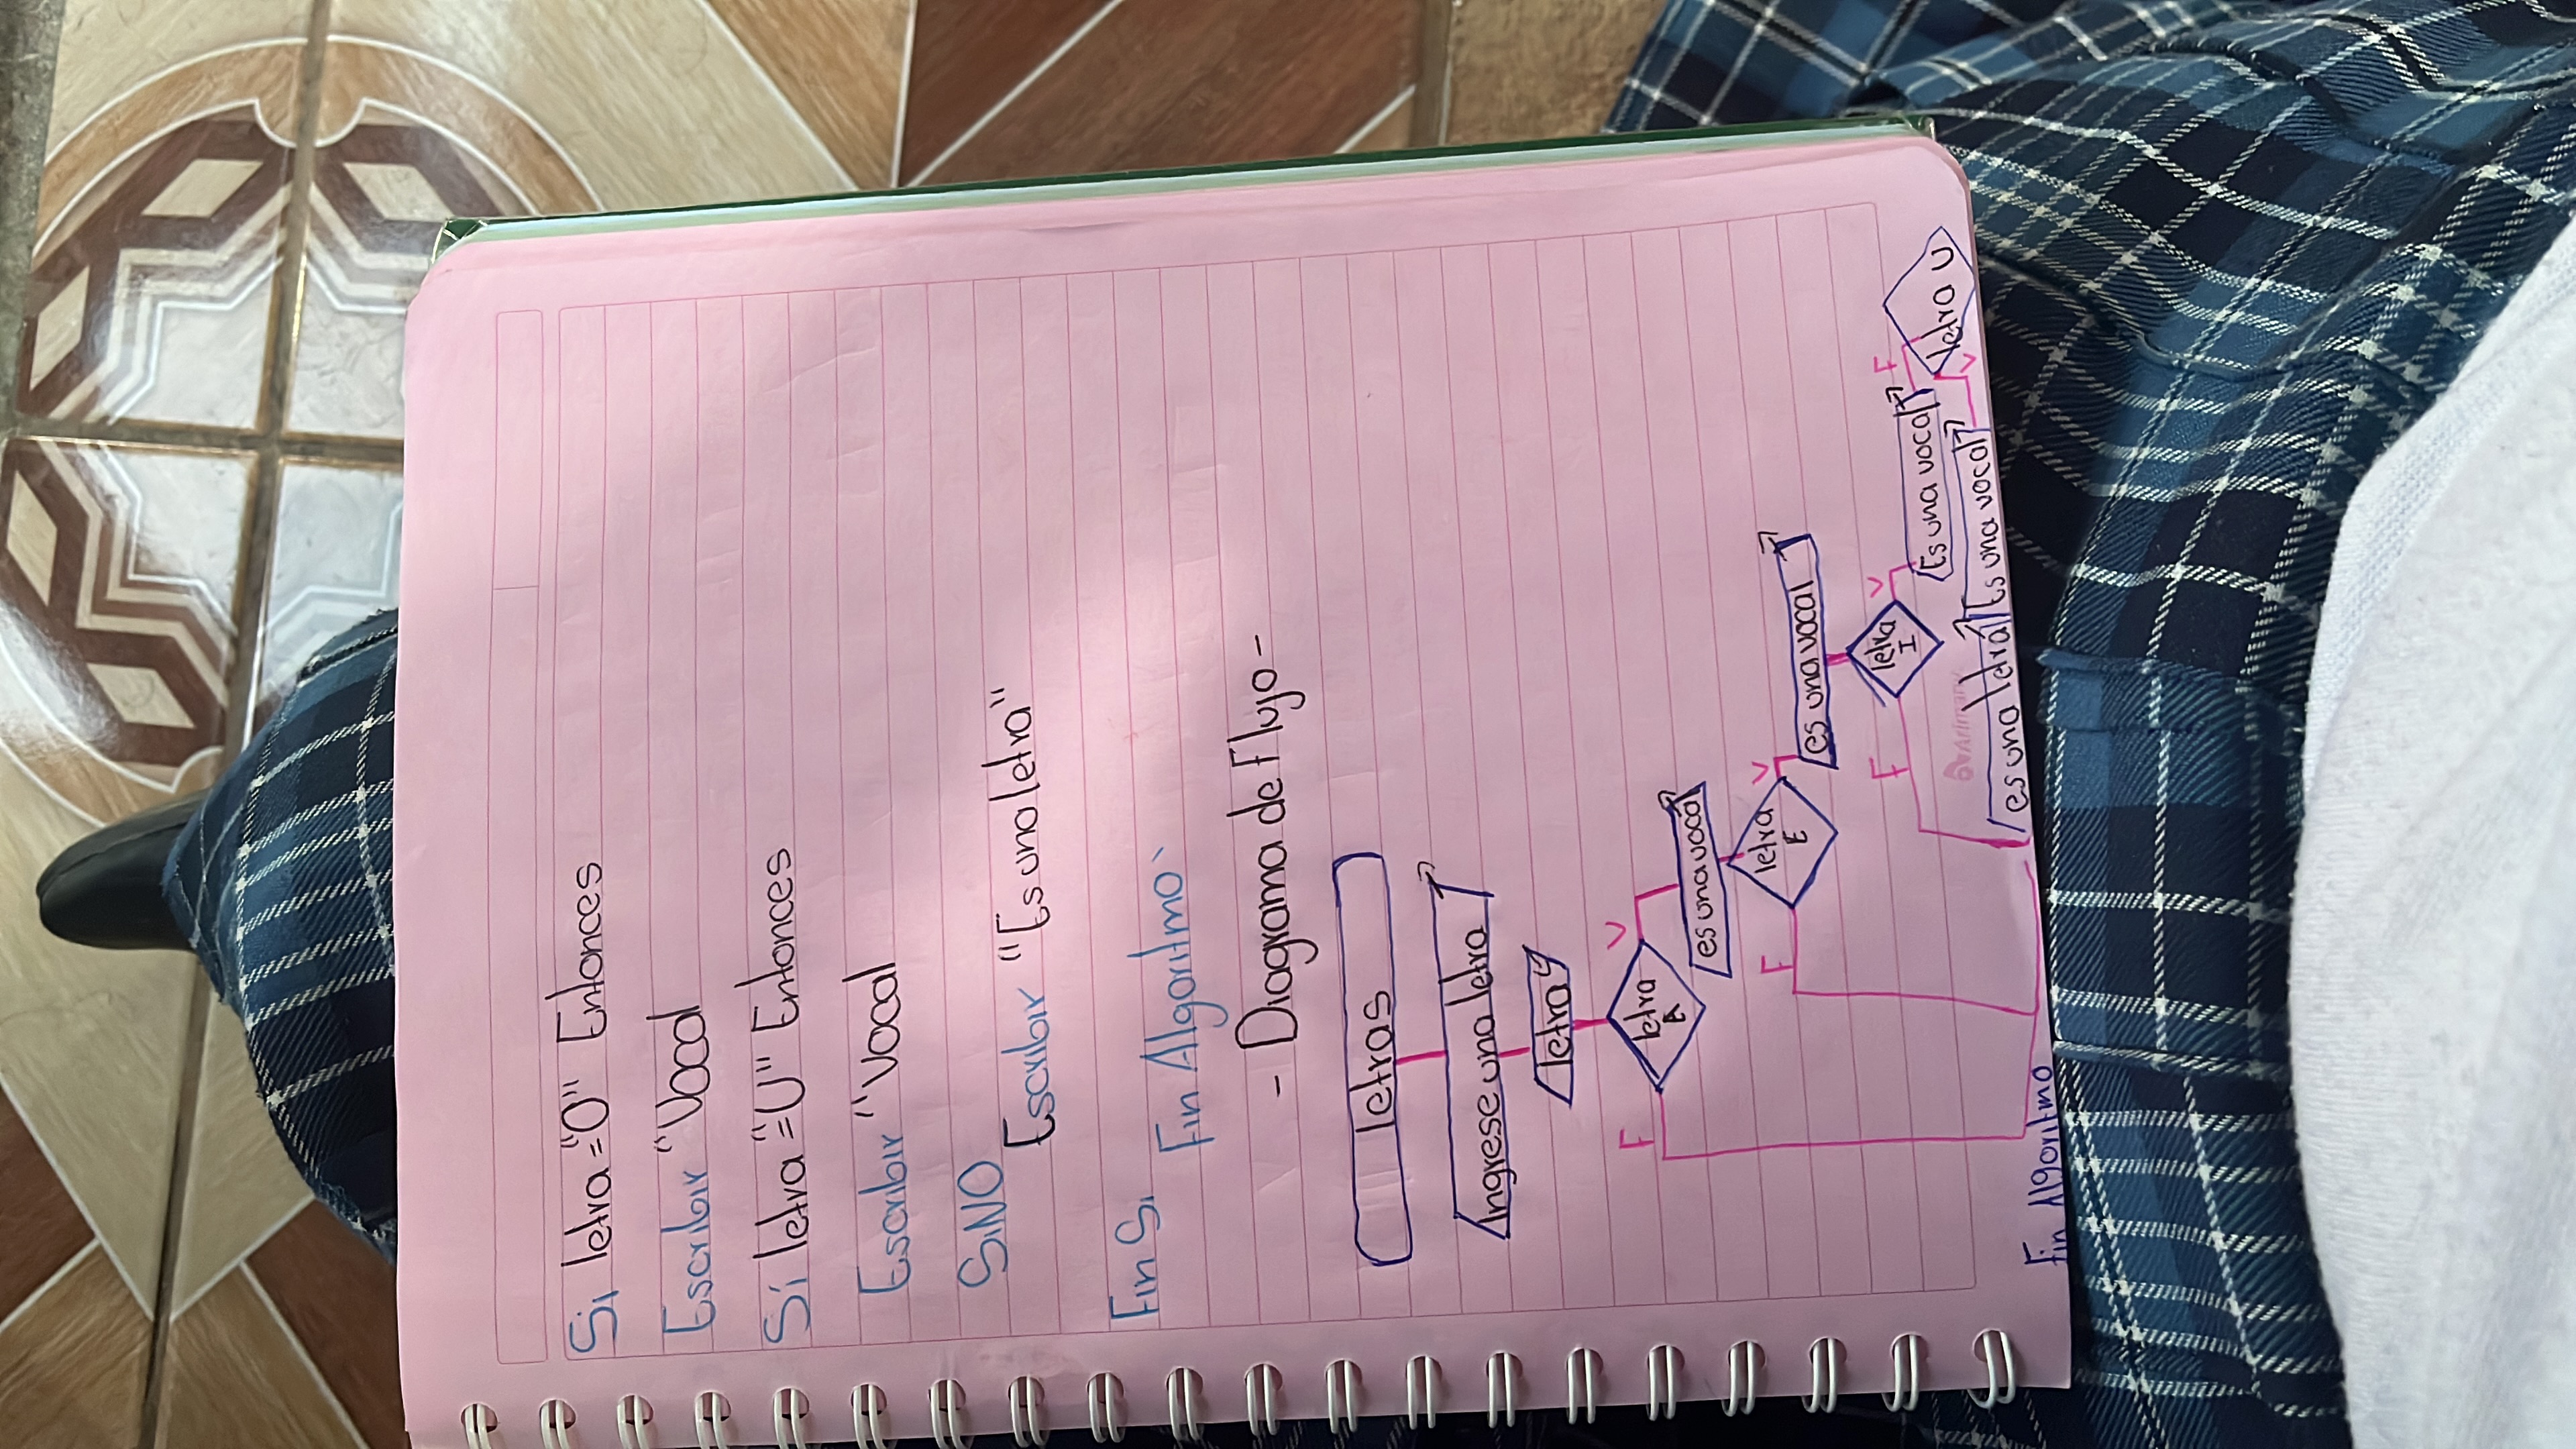 Si letra = "O" Entonces
Escribir "Vocal
Si letra = "U" Entonces
Escribir "Vocal
SiNO
Escribir "Es una letra"
Fin Si
Fin Algoritmo
- Diagrama de Flujo -
letras
Ingrese una letra
letra
letra A
V
F
es una vocal
letra E
V
F
es una vocal
letra I
V
F
Es una vocal
F
letra U
V
Es una vocal
es una letra
Fin Algoritmo